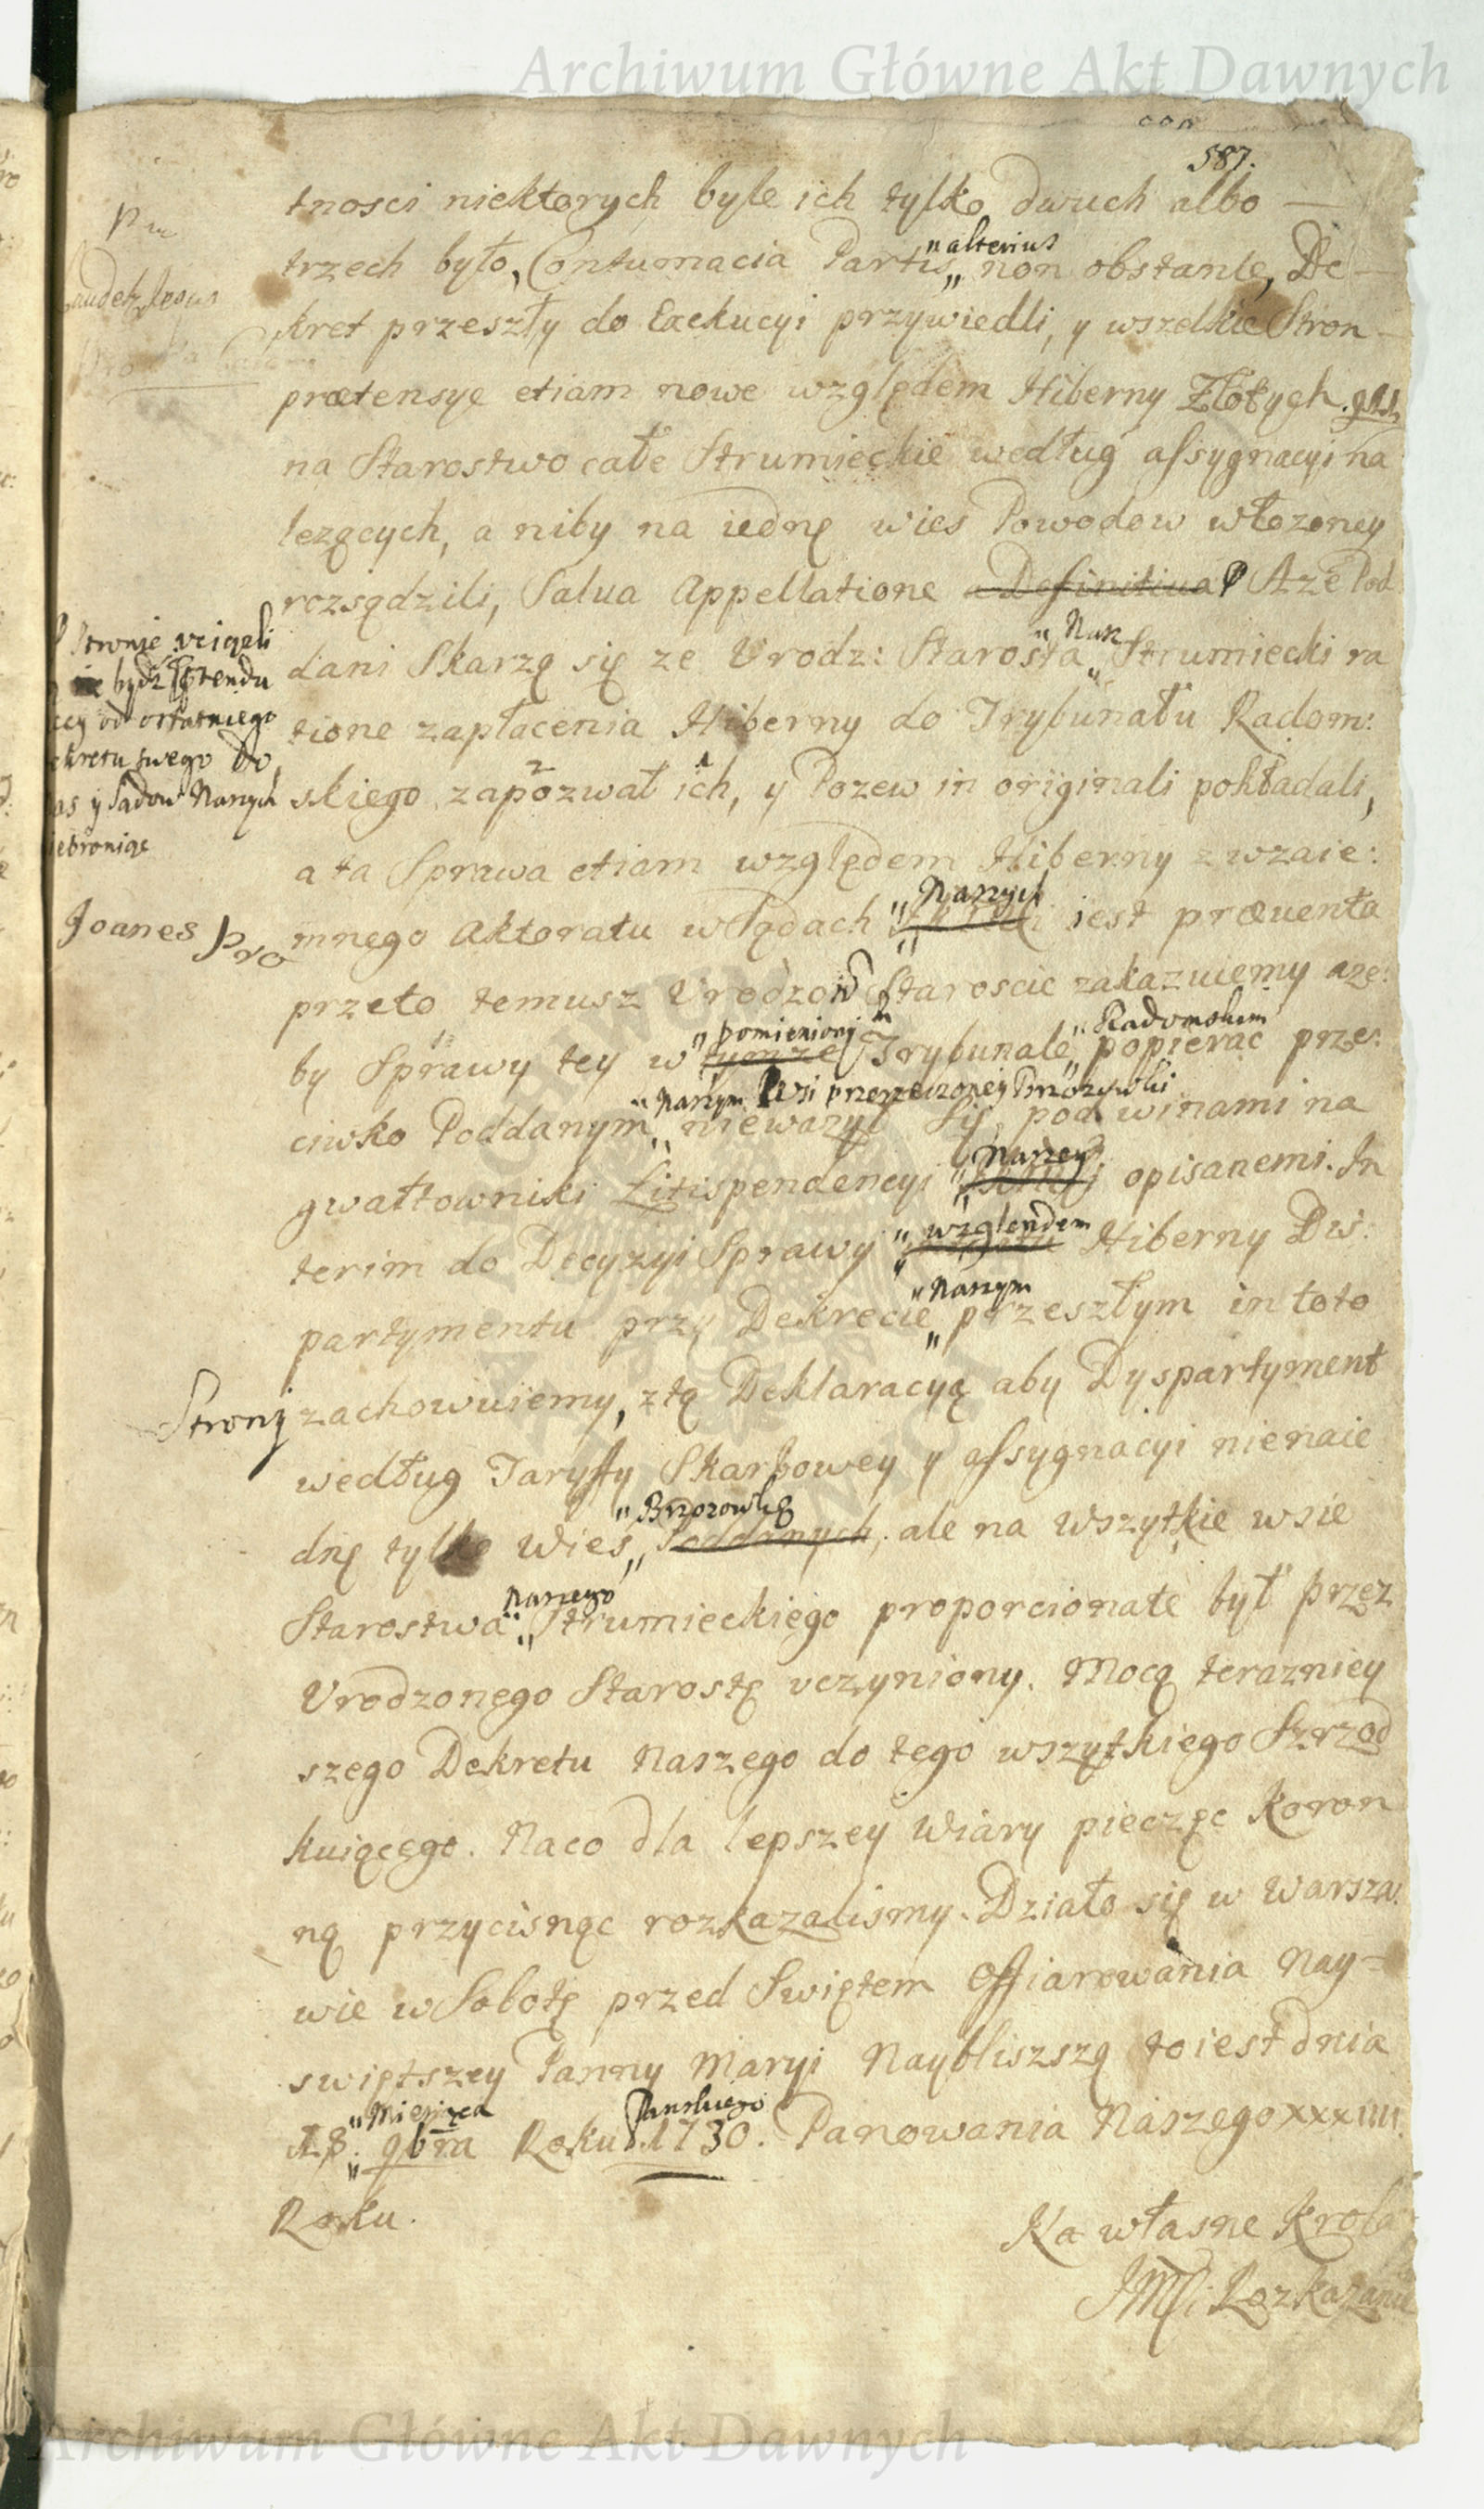 Archiwum Główne Akt Dawnych
587.
tnosci niektorych byle ich tylko dwuch albo
trzech było, Contumacia Partis „alterius„ non obstante, De-
kret przeszły do Exekucyi przywiedli, y wszelkie Stron
prætensye etiam nowe względem Hiberny Złotych
na Starostwo całe Strumieckie według assygnacyi na
lezących, a niby na iednę wies Powodow włozoney
rozsądzili, Salua Appellatione Definitiua Aze Pod
dani Skarzą się ze Vrodz: Starosta „Nasz„ Strumiecki ra
tione zapłacenia Hiberny do Trybunału Radom:
skiego zapozwał ich, y Pozew in originali pokładali,
a ta Sprawa etiam względem Hiberny z wzaie:
mnego Aktoratu w Sądach „Naszych iest præuenta
przeto temusz Vrodzo Staroscie zakazuiemy aze:
by Sprawy tey w „pomieniony tymze Trybunale „Radomskim popierac prze:
ciwko Poddanym „Naszym Wsi przerzeczoney Brzozowki niewazył Się, pod winami na
gwałtowniki Litispendencyi „Naszey opisanemi. In
terim do Decyzyi Sprawy „względem Hiberny Dis:
partymentu przy Dekrecie „Naszym„ przeszłym in toto
zachowuiemy, z tą Deklaracyą aby Dyspartyment
według Taryffy Skarbowey y assygnacyi nienaie
dnę tylko Wies „Brzozowkę„ Poddanych, ale na wszytkie wsie
Starostwa „Naszego„ Strumieckiego proporcionate był przez
Vrodzonego Starostę vczyniony. Mocą terazniey
szego Dekretu Naszego do tego wszytkiego Szrzod
kuiącego. Naco dla lepszey Wiary pieczęc Koron
ną przycisnąc rozkazalismy. Działo się w Warsza:
wie w Sobotę przed Swiętem Offiarowania Nay-
swiętszey Panny Maryi Naybliszszą toiest dnia
18. „Miesiąca„ 9bra Roku Panskiego 1730. Panowania Naszego XXXIIII.
Roku.
Na własne Krola
JMCi Rozkazanie
Stronie
bydz
od ostatniego
swego Do
y Sadow Naszych
Joanes pro
Strony
Archiwum Główne Akt Dawnych